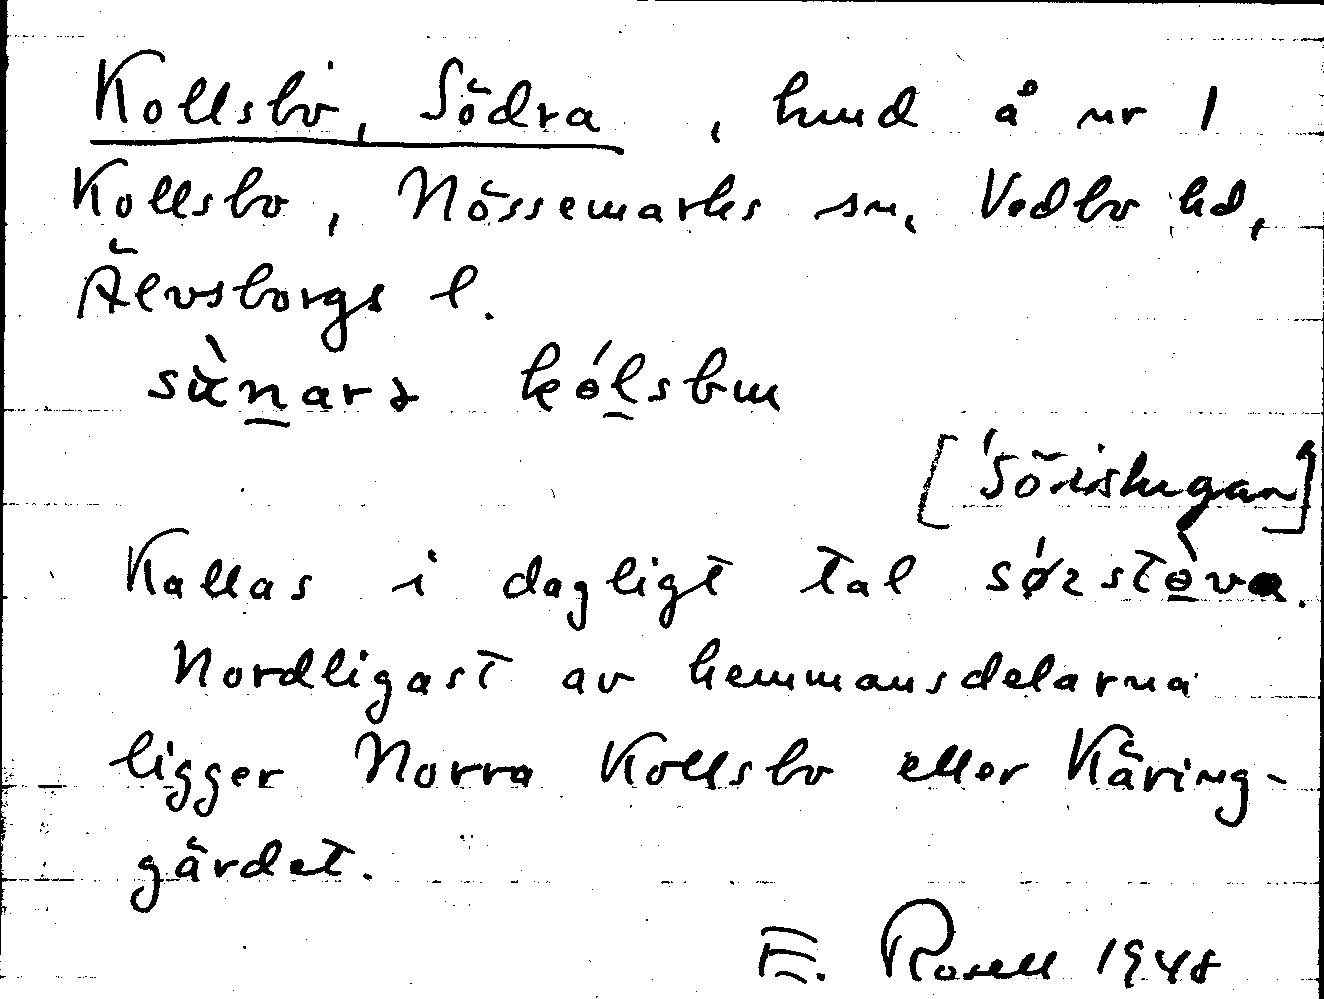 Kollsbo, Södra, hmd å nr 1
Kollsbo, Nössemarks sn, Vedbo hd,
Älvsborgs l.
kɵ́lsbm
[Söristugan]
Kallas i dagligt tal
Nordligast av hemmansdelarna
ligger Norra Kollsbo eller Käring-
gärdet.
E. Rosell 1948